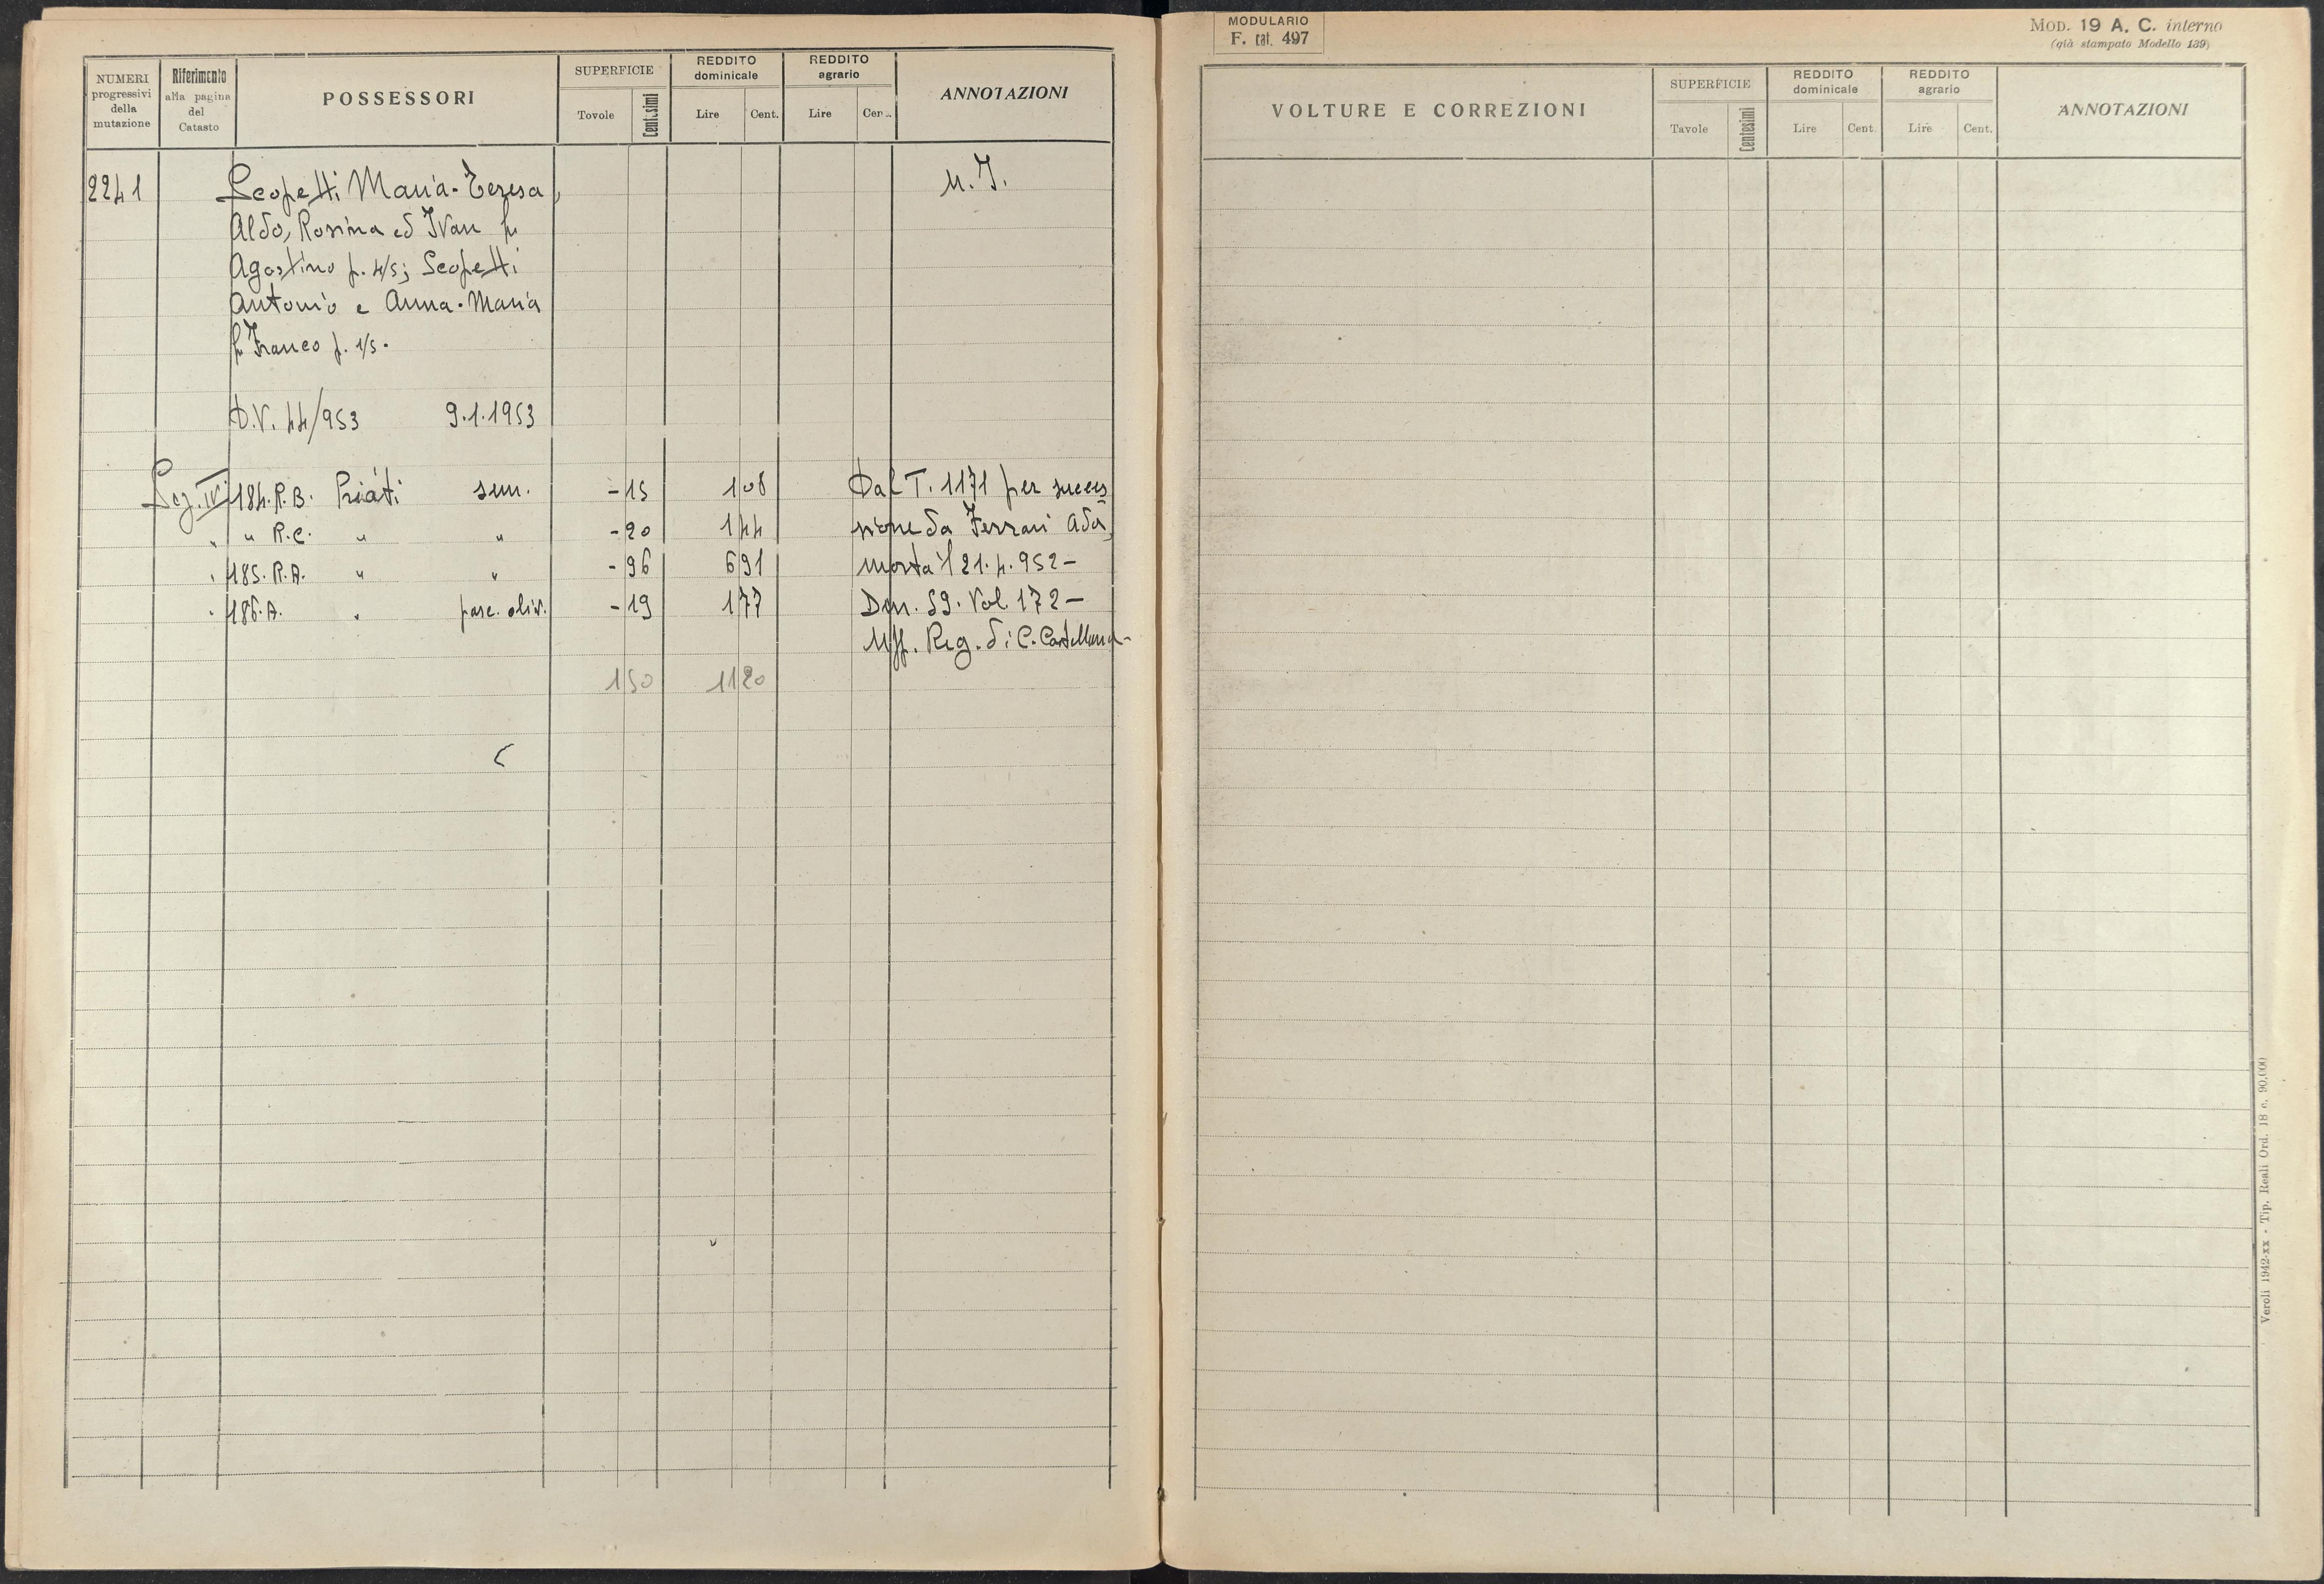 NUMERI progressivi della mutazione
Riferimento alla pagina del Catasto
POSSESSORI
SUPERFICIE
Tovole
Centesimi
REDDITO dominicale
Lire
Cent.
REDDITO agrario
Lire
Cen
ANNOTAZIONI
2241 Scopetti Maria-Teresa, M.I.
Aldo, Rosina ed Ivan fu
Agostino p. 4/5; Scopetti
Antonio e Anna-Maria
fu Franco p. 1/5.
D.V. 44/953 9.1.1953
Sez. IV 184.R.B. Priati sem. -15 108 Dal T. 1171 per succes
" " R.C. " " -20 144 sione da Ferrari Ada,
" 185.R.A. " " -96 691 morta il 21.4.952-
" 186.A. " pasc. oliv. -19 177 Den. 59. Vol. 172-
Uff. Reg. di C. Castellana-
150 1120
MODULARIO
F. cat. 497
MOD. 19 A. C. interno
(già stampato Modello 139)
VOLTURE E CORREZIONI
SUPERFICIE
Tavole
Centesimi
REDDITO dominicale
Lire
Cent.
REDDITO agrario
Lire
Cent.
ANNOTAZIONI
Veroli 1942-xx - Tip. Reali Ord. 18 c. 90.000